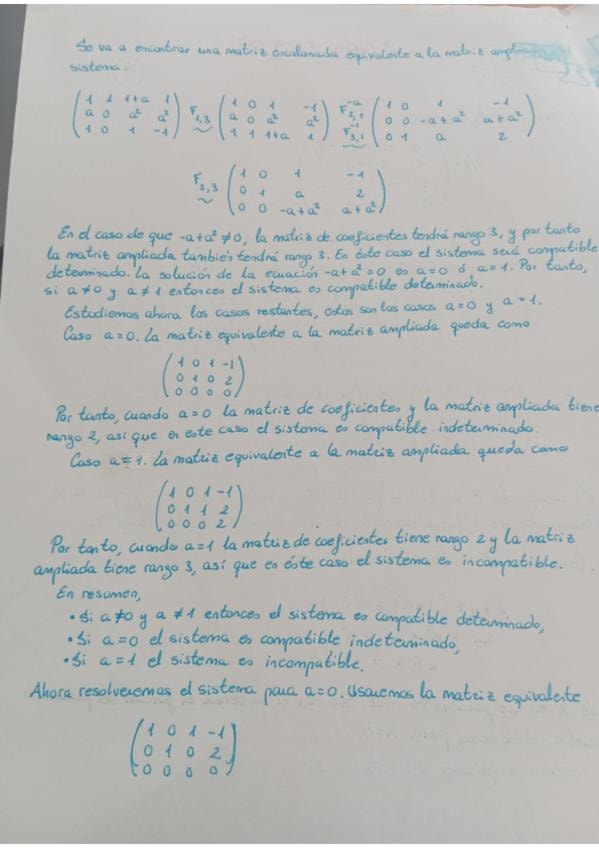 Se va a encontrar una matriz escalonada equivalente a la matriz ampliada
sistema.
( 1 1 1+a 1 ) F1,3 ( 1 0 1 -1 ) F2,1^-a ( 1 0 1 -1 )
( a 0 a² a² ) ~ ( a 0 a² a² ) F3,1^-1 ( 0 0 -a+a² a+a² )
( 1 0 1 -1 ) ( 1 1 1+a 1 ) ~ ( 0 1 a 2 )
F2,3 ( 1 0 1 -1 )
~ ( 0 1 a 2 )
( 0 0 -a+a² a+a² )
En el caso de que -a+a² ≠ 0, la matriz de coeficientes tendrá rango 3, y por tanto
la matriz ampliada también tendrá rango 3. En éste caso el sistema será compatible
determinado. La solución de la ecuación -a+a² = 0 es a=0 ó a=1. Por tanto,
si a≠0 y a≠1 entonces el sistema es compatible determinado.
Estudiemos ahora los casos restantes, estos son los casos a=0 y a=1.
Caso a=0. La matriz equivalente a la matriz ampliada queda como
( 1 0 1 -1 )
( 0 1 0 2 )
( 0 0 0 0 )
Por tanto, cuando a=0 la matriz de coeficientes y la matriz ampliada tiene
rango 2, así que en este caso el sistema es compatible indeterminado.
Caso a=1. La matriz equivalente a la matriz ampliada queda como
( 1 0 1 -1 )
( 0 1 1 2 )
( 0 0 0 2 )
Por tanto, cuando a=1 la matriz de coeficientes tiene rango 2 y la matriz
ampliada tiene rango 3, así que en éste caso el sistema es incompatible.
En resumen,
• Si a≠0 y a≠1 entonces el sistema es compatible determinado,
• Si a=0 el sistema es compatible indeterminado,
• Si a=1 el sistema es incompatible.
Ahora resolveremos el sistema para a=0. Usaremos la matriz equivalente
( 1 0 1 -1 )
( 0 1 0 2 )
( 0 0 0 0 )